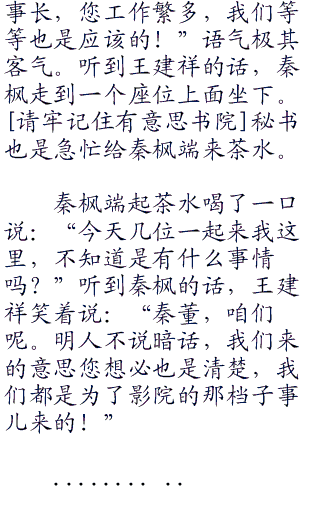 事长，您工作繁多，我们等
等也是应该的！”语气极其
客气。听到王建祥的话，秦
枫走到一个座位上面坐下。
[请牢记住有意思书院]秘书
也是急忙给秦枫端来茶水。
秦枫端起茶水喝了一口
说：“今天几位一起来我这
里，不知道是有什么事情
吗？”听到秦枫的话，王建
祥笑着说：“秦董，咱们
呢。明人不说暗话，我们来
的意思您想必也是清楚，我
们都是为了影院的那档子事
儿来的！”
........ ..